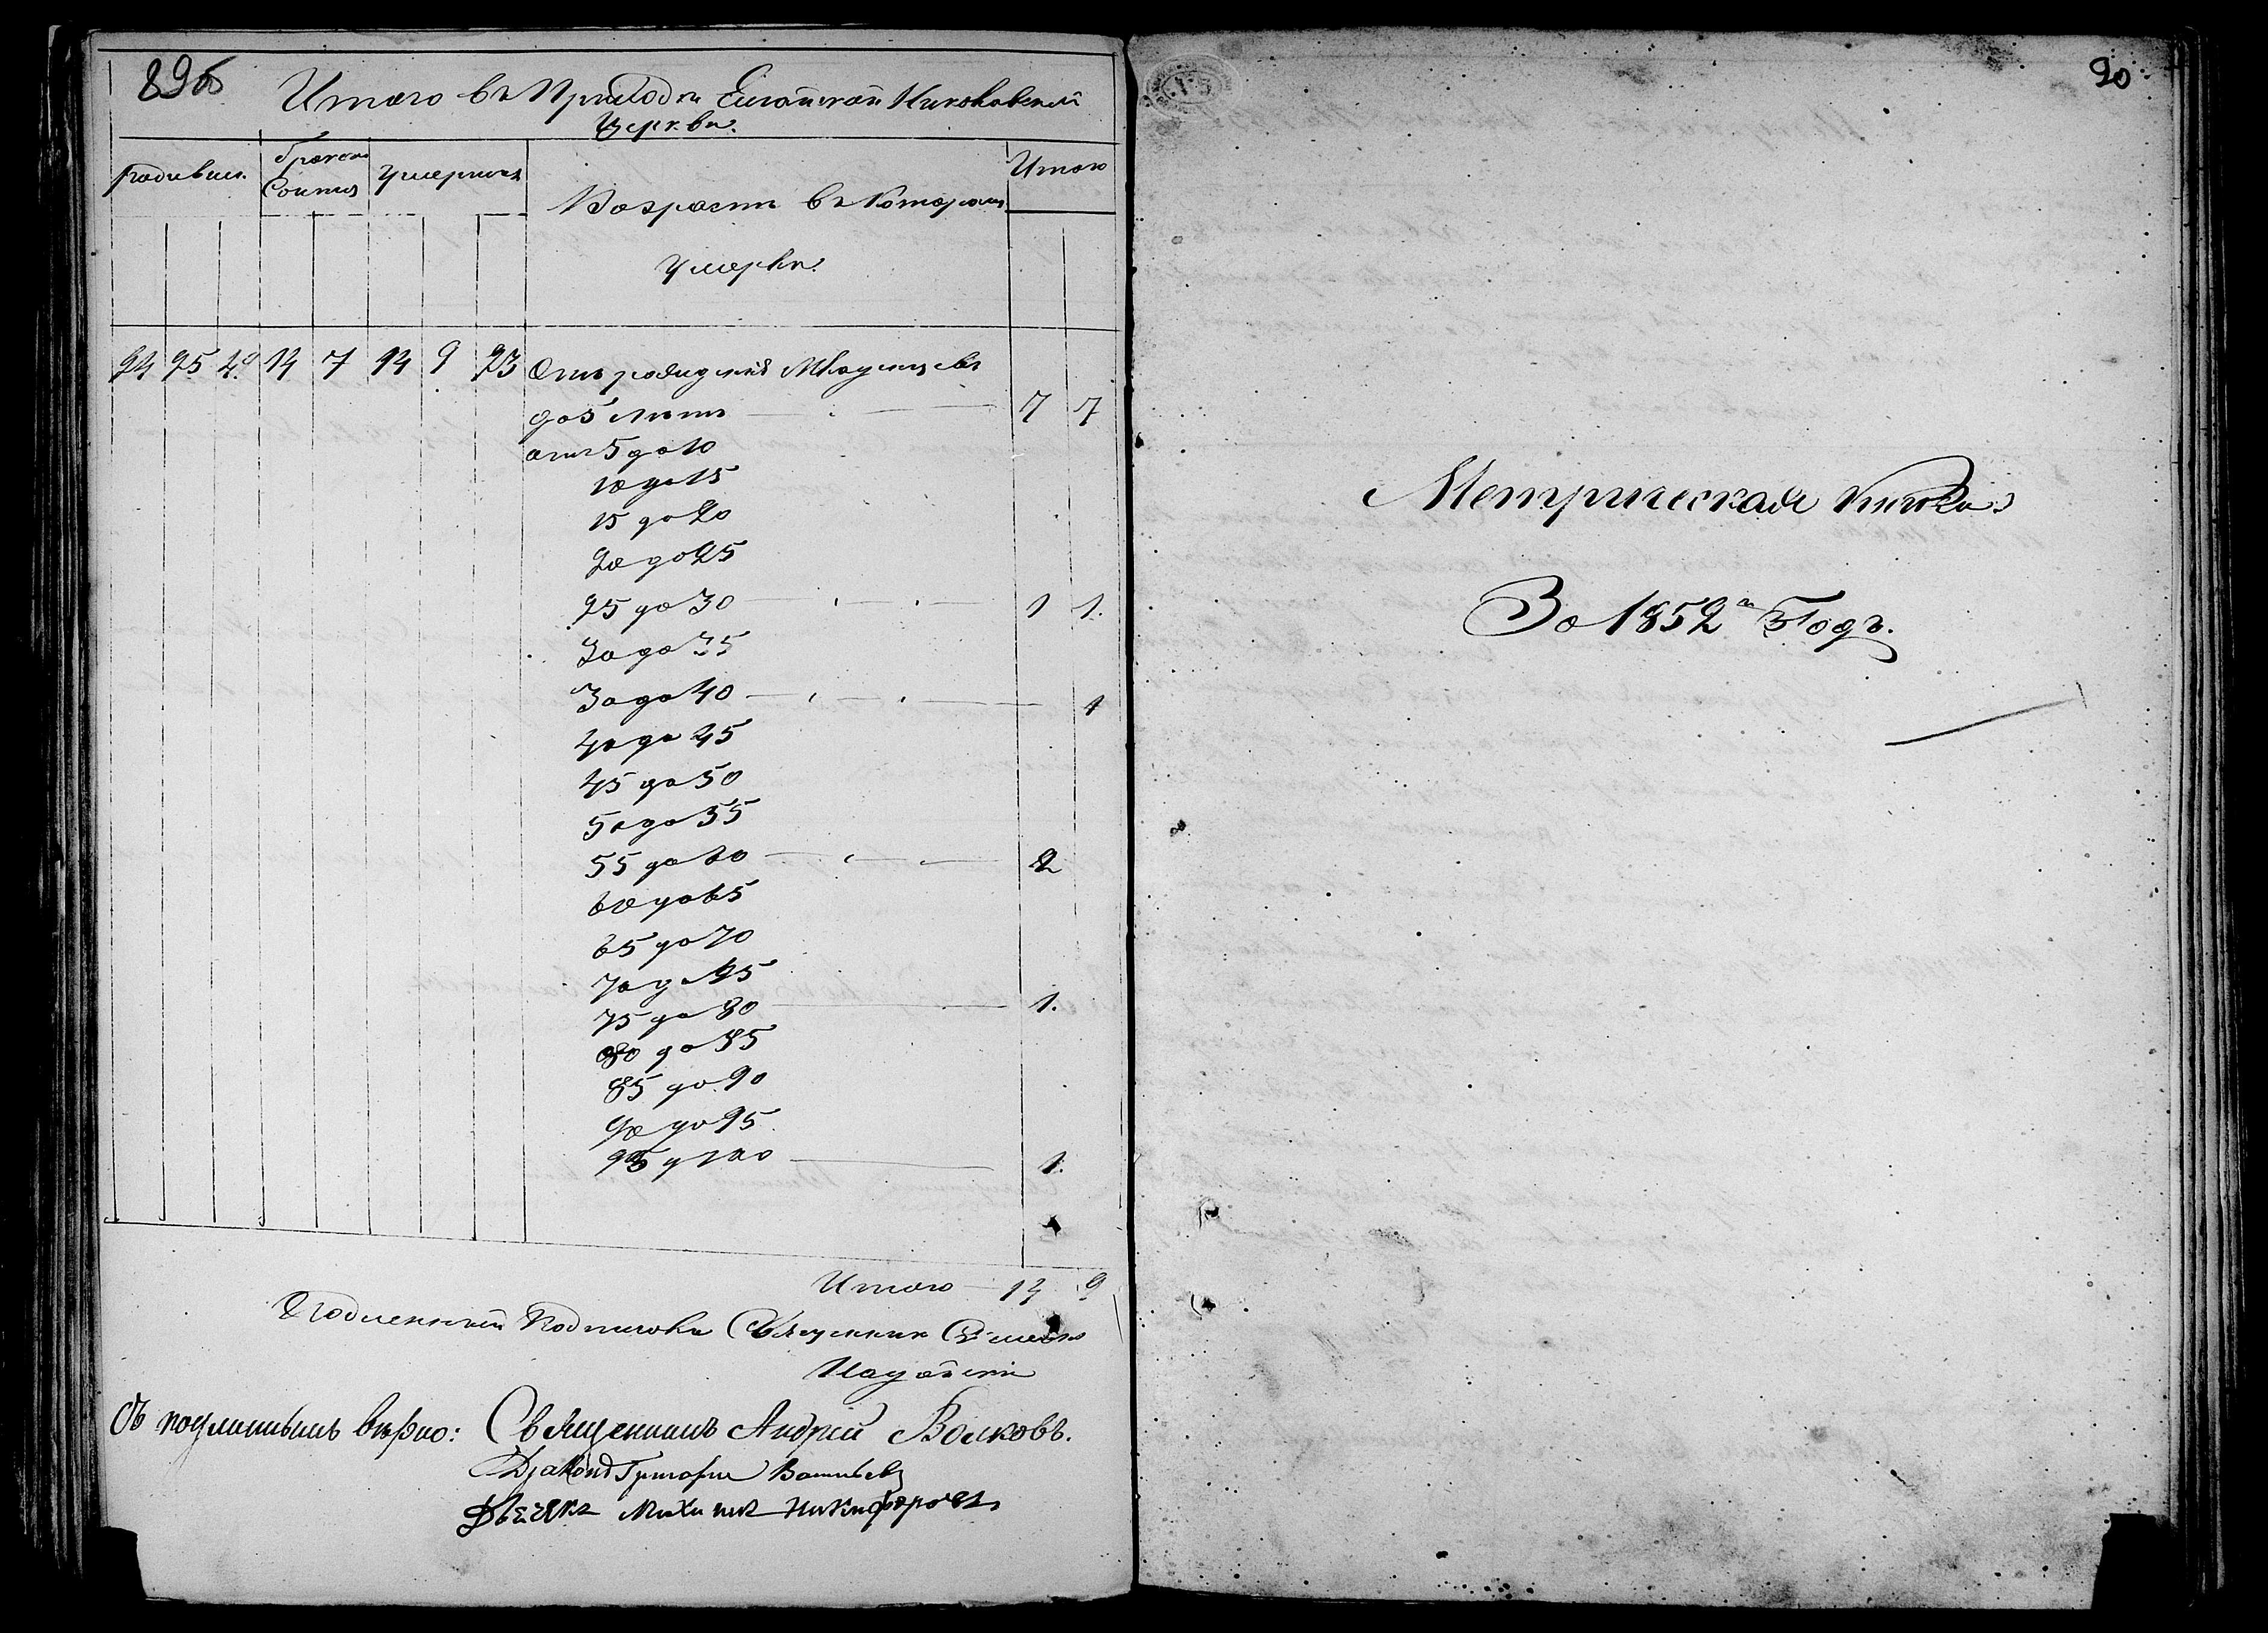 89об
Итого въ Приходѣ Николаевской
Церкви.
родивши. Бракомъ Умершихъ Итого
Сочтан
Возрастъ въ Которомъ
Умерли.
24 25 49 14 7 14 9 23 Отъ рождения Младенцевъ
до 5 лѣтъ 7 7
отъ 5 до 10
10 до 15
15 до 20
20 до 25
25 до 30 1 1.
30 до 35
30 до 40 1
40 до 45
45 до 50
50 до 55
55 до 60 2
60 до 65
65 до 70
70 до 75
75 до 80 1.
80 до 85
85 до 90
90 до 95
95 до 100 1.
Итого 14 9
Подленной Подписовъ Священник
Съ подлиннымъ вѣрно: Священникъ Андрей Волковъ.
Дьяконъ Григорий Васильев
Дьячекъ Михаил Никифоровъ
90
Метрическая книга
За 1852й Годъ.